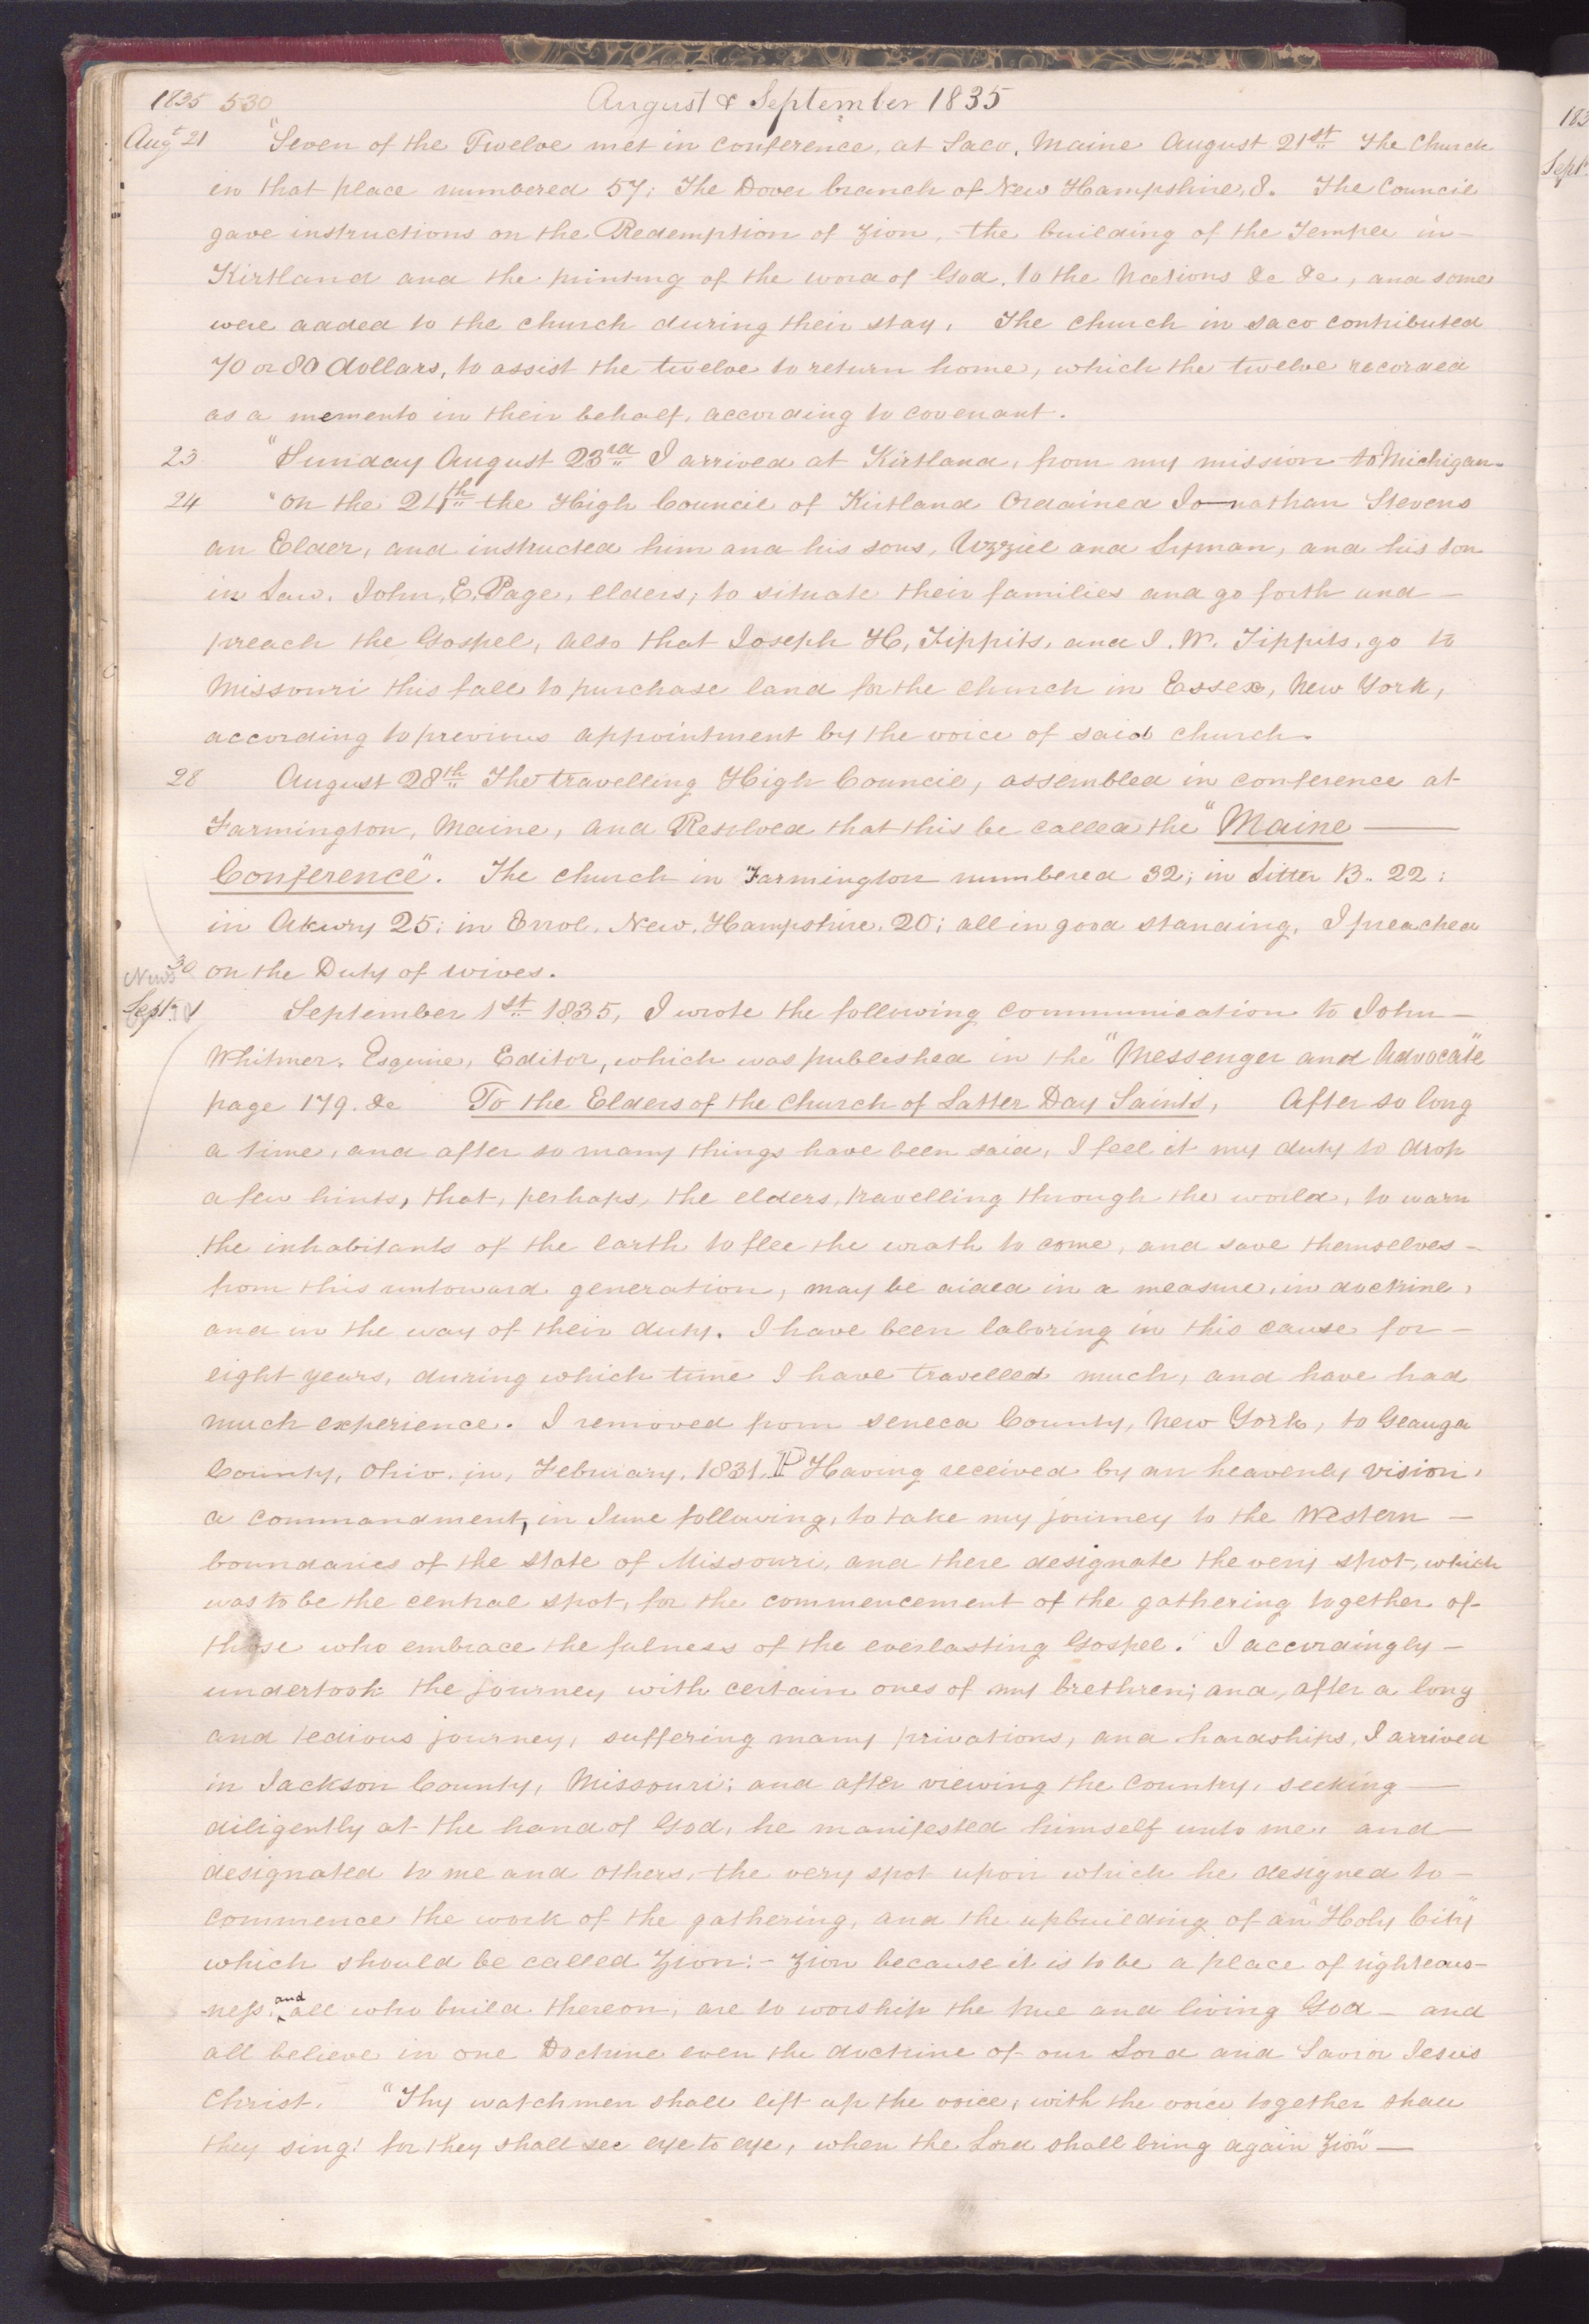 1835 530 August & September 1835
Augt 21 "Seven of the Twelve met in conference, at Saco, Maine August 21st The Church
in that place numbered 57; The Dover branch of New Hampshire, 8. The Council
gave instructions on the Redemption of Zion, the building of the Temple in
Kirtland and the printing of the word of God, to the Nations &c &c, and some
were added to the church during their stay. The church in Saco contributed
70 or 80 dollars, to assist the twelve to return home, which the twelve recorded
as a memento in their behalf, according to covenant.
23. "Sunday August 23rd I arrived at Kirtland, from my mission to Michigan.
24 "On the 24th the High Council of Kirtland Ordained Jonathan Stevens
an Elder, and instructed him and his sons, Uzziel and Lyman, and his son
in Law, John, E, Page, elders, to situate their families and go forth and —
preach the Gospel, also that Joseph H, Tippits, and J. W. Tippits, go to
Missouri this fall to purchase land for the church in Essex, New York,
according to previous appointment by the voice of said church.
28 August 28th The travelling High Council, assembled in conference at
Farmington, Maine, and Resolved that this be called the "Maine —
Conference". The church in Farmington numbered 32; in Litter B. 22;
in Akwry 25; in Errol, New, Hampshire, 20; all in good standing, I preached
30 on the Duty of wives.
News
Sept. 1 September 1st 1835, I wrote the following communication to John —
Whitmer, Esquire, Editor, which was published in the "Messenger and Advocate"
page 179. &c To the Elders of the Church of Latter Day Saints, After so long
a time, and after so many things have been said, I feel it my duty to drop
a few hints, that, perhaps, the elders, travelling through the world, to warn
the inhabitants of the earth to flee the wrath to come, and save themselves —
from this untoward generation, may be aided in a measure, in doctrine,
and in the way of their duty. I have been laboring in this cause for —
eight years, during which time I have travelled much, and have had
much experience. I removed from Seneca County, New York, to Geauga
County, Ohio, in, February, 1831. P Having received by an heavenly vision,
a commandment, in June following, to take my journey to the Western —
boundaries of the state of Missouri, and there designate the very spot, which
was to be the central spot, for the commencement of the gathering together of
those who embrace the fulness of the everlasting Gospel. I accordingly —
undertook the journey with certain ones of my brethren; and, after a long
and tedious journey, suffering many privations, and hardships, I arrived
in Jackson County, Missouri; and after viewing the country, seeking —
diligently at the hand of God, he manifested himself unto me, and —
designated to me and others, the very spot upon which he designed to —
commence the work of the gathering, and the upbuilding of an "Holy City"
which should be called Zion: — Zion because it is to be a place of righteous-
-ness, and all who build thereon, are to worship the true and living God — and
all believe in one Doctrine even the doctrine of our Lord and Savior Jesus
Christ. "Thy watchmen shall lift up the voice, with the voice together shall
they sing! for they shall see eye to eye, when the Lord shall bring again Zion" —
183
Sept.